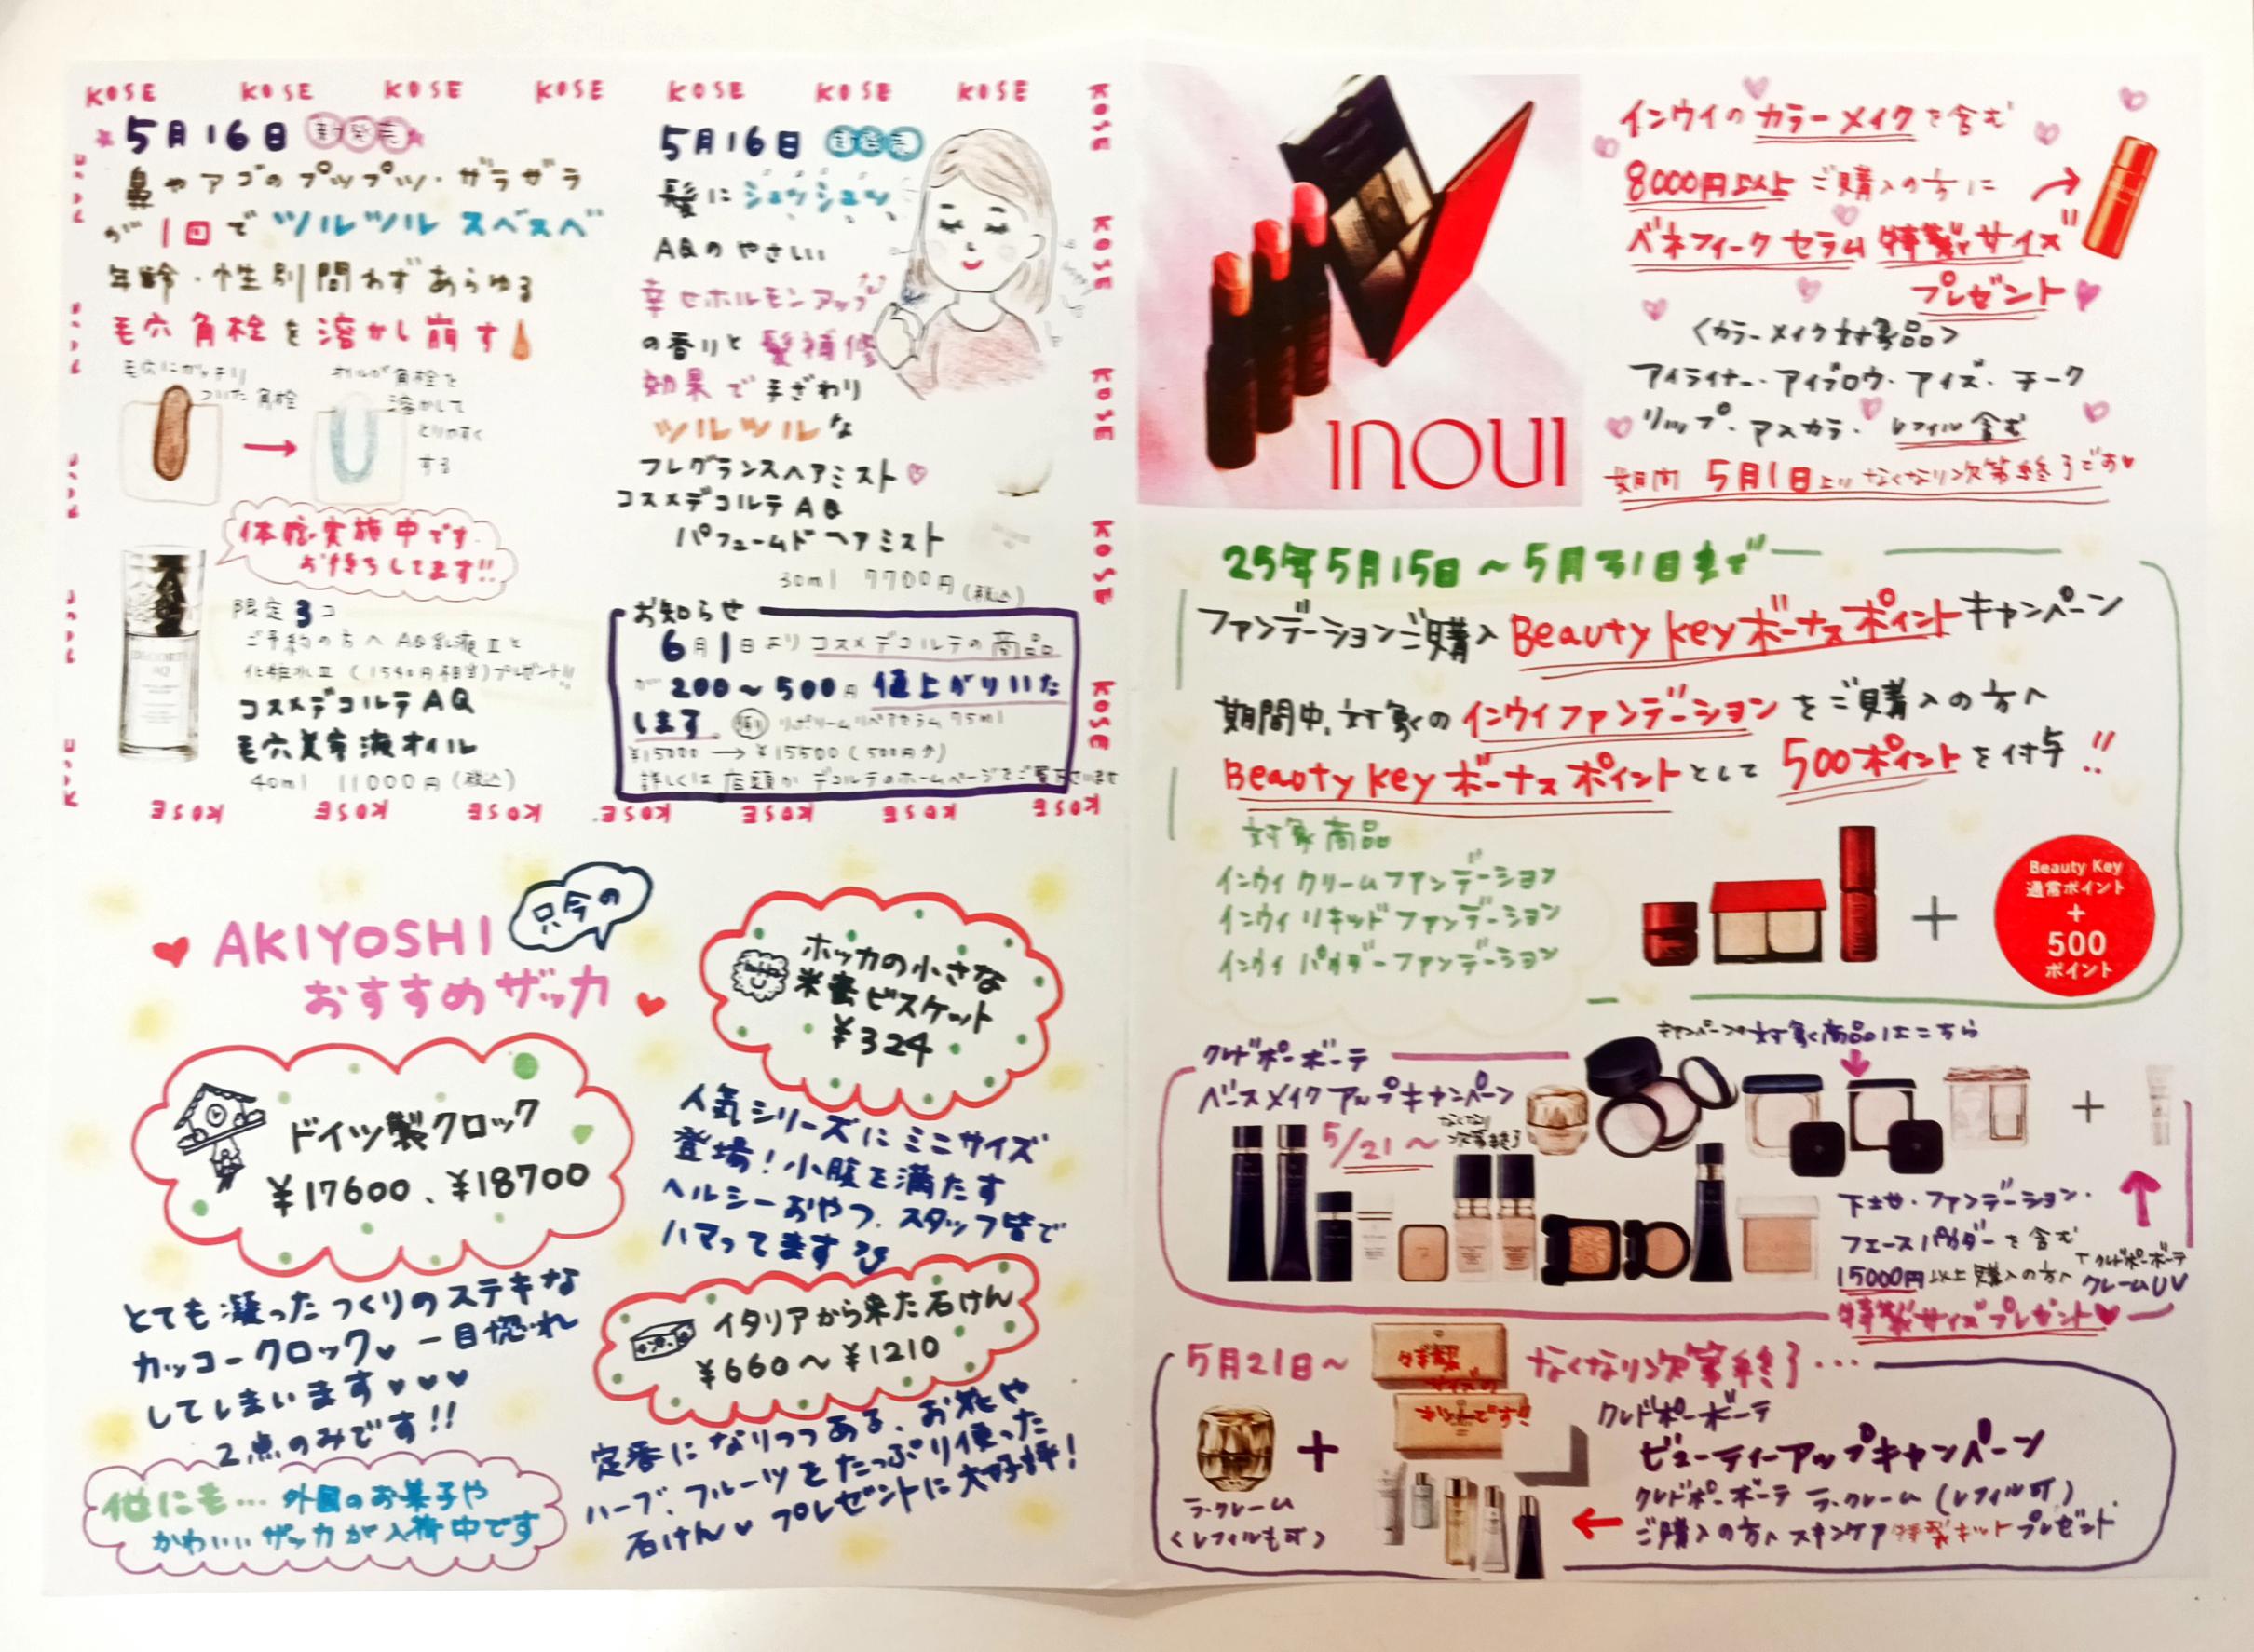 KOSE KOSE KOSE KOSE KOSE KOSE KOSE
5月16日 新発売
鼻やアゴのプップツ・ザラザラ
が1回でツルツルスベスベ
年齢・性別問わずあらゆる
毛穴角栓を溶かし崩す
毛穴にガッチリ
ついた角栓
オイルが角栓を
溶かして
とりやすく
する
体感実施中です
お待ちしてます!!
限定3コ
ご予約の方へ AQ乳液Ⅱと
化粧水Ⅱ(1540円相当)プレゼント!!
DECORTÉ
AQ
コスメデコルテAQ
毛穴美容液オイル
40ml 11000円(税込)
5月16日 新発売
髪にシュッシュッ
AQのやさしい
幸せホルモンアップ
の香りと髪補修
効果で手ざわり
ツルツルな
フレグランスヘアミスト♡
コスメデコルテAQ
パフュームドヘアミスト
30ml 7700円(税込)
お知らせ
6月1日よりコスメデコルテの商品
が200〜500円値上がりいた
します。例)リポソームリペアセラム75ml
¥15000→¥15500(500円up)
詳しくは店頭かデコルテのホームページをご覧下さいませ
KOSE KOSE KOSE KOSE KOSE
KOSE KOSE KOSE KOSE KOSE KOSE KOSE
只今の
AKIYOSHI
おすすめザッカ
ドイツ製クロック
¥17600、¥18700
とても凝ったつくりのステキな
カッコークロック♥一目惚れ
してしまいます♥♥♥
2点のみです!!
他にも…外国のお菓子や
かわいいザッカが入荷中です
ホッカの小さな
米蜜ビスケット
¥324
人気シリーズにミニサイズ
登場!小腹を満たす
ヘルシーおやつ。スタッフ皆で
ハマってます
イタリアから来た石けん
¥660〜¥1210
定番になりつつある、お花や
ハーブ、フルーツをたっぷり使った
石けん♥プレゼントに大好評!
INOUI
インウイのカラーメイクを含む
8000円以上ご購入の方に
ベネフィークセラム特製サイズ
プレゼント♥
〈カラーメイク対象品〉
アイライナー・アイブロウ・アイズ・チーク
リップ・マスカラ・レフィル含む
期間 5月1日よりなくなり次第終了です♥
25年5月15日〜5月31日まで
ファンデーションご購入 Beauty Keyボーナスポイントキャンペーン
期間中、対象のインウイファンデーションをご購入の方へ
Beauty Keyボーナスポイントとして500ポイントを付与!!
対象商品
インウイ クリームファンデーション
インウイ リキッドファンデーション
インウイ パウダーファンデーション
+
Beauty Key
通常ポイント
+
500
ポイント
クレドポーボーテ
ベースメイクアップキャンペーン
5/21〜
なくなり
次第終了
キャンペーンの対象商品はこちら
+
下地・ファンデーション・
フェースパウダーを含む
15000円以上購入の方へ
クレドポーボーテ
クレームUV
特製サイズプレゼント♥
5月21日〜
特製
サイズの
キットです!!
なくなり次第終了…
+
ラ・クレーム
〈レフィルも可〉
クレドポーボーテ
ビューティーアップキャンペーン
クレドポーボーテ ラ・クレーム(レフィル可)
ご購入の方へスキンケア特製キットプレゼント